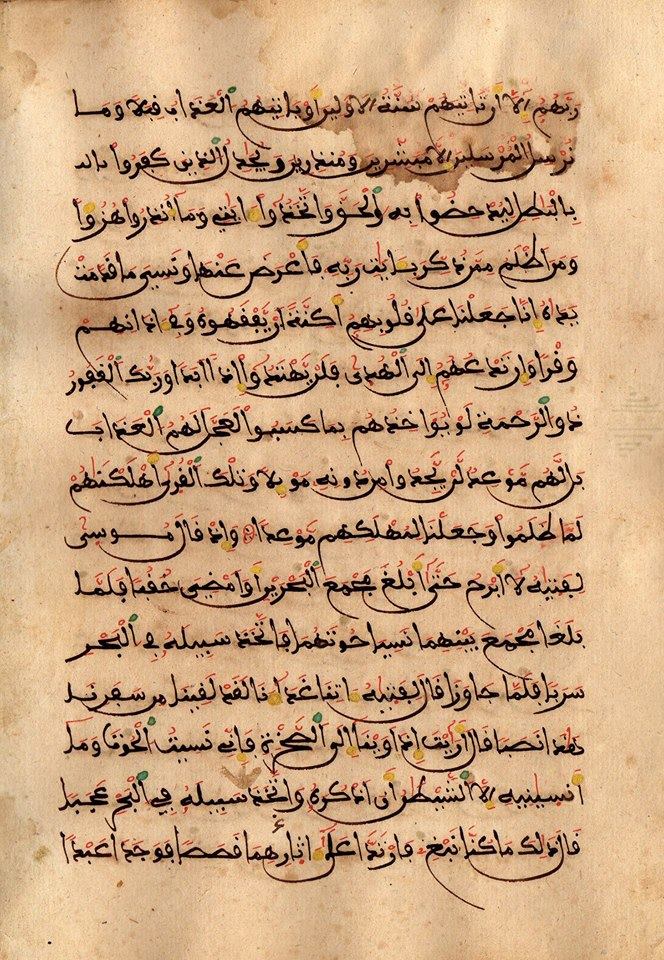 رَبَّهُمُ إِلَّا أَن تَاتِيَهُمْ سُنَّةُ الَاوَّلِينَ أَوْ يَاتِيَهُمُ الْعَذَابُ قِبَلًا وَمَا
نُرْسِلُ الْمُرْسَلِينَ إِلَّا مُبَشِّرِينَ وَمُنذِرِينَ وَيُجَٰدِلُ الذِينَ كَفَرُواْ بِالْبَـ
بِالْبَٰطِلِ لِيُدْحِضُواْ بِهِ الْحَقَّ وَاتَّخَذُواْ ءَايَٰتِي وَمَا أُنذِرُواْ هُزُؤاً
وَمَنَ اَظْلَمُ مِمَّن ذُكِّرَ بِـَٔايَٰتِ رَبِّهِ فَأَعْرَضَ عَنْهَا وَنَسِيَ مَا قَدَّمَتْ
يَدَٰهُ إِنَّا جَعَلْنَا عَلَىٰ قُلُوبِهِمُ أَكِنَّةً أَنْ يَّفْقَهُوهُ وَفِي ءَاذَانِهِمْ
وَقْراً وَإِن تَدْعُهُمُ إِلَى الْهُدَىٰ فَلَنْ يَّهْتَدُواْ إِذاً أَبَداً وَرَبُّكَ الْغَفُورُ
ذُو الرَّحْمَةِ لَوْ يُوَاخِذُهُم بِمَا كَسَبُواْ لَعَجَّلَ لَهُمُ الْعَذَابَ
بَل لَّهُم مَّوْعِدٌ لَّنْ يَّجِدُواْ مِن دُونِهِ مَوْئِلًا وَتِلْكَ الْقُرَىٰ أَهْلَكْنَٰهُمْ
لَمَّا ظَلَمُواْ وَجَعَلْنَا لِمُهْلَكِهِم مَّوْعِداً وَإِذْ قَالَ مُوسَىٰ
لِفَتَيٰهُ لَا أَبْرَحُ حَتَّىٰ أَبْلُغَ مَجْمَعَ الْبَحْرَيْنِ أَوَ اَمْضِيَ حُقُباً فَلَمَّا
بَلَغَا مَجْمَعَ بَيْنِهِمَا نَسِيَا حُوتَهُمَا فَاتَّخَذَ سَبِيلَهُ فِي الْبَحْرِ
سَرَباً فَلَمَّا جَاوَزَا قَالَ لِفَتَيٰهُ ءَاتِنَا غَدَاءَنَا لَقَدْ لَقِينَا مِن سَفَرِنَا
هَٰذَا نَصَباً قَالَ أَرَٰيْتَ إِذَ اَوَيْنَا إِلَى الصَّخْرَةِ فَإِنِّي نَسِيتُ الْحُوتَ وَمَا
أَنسَيٰنِيهِ إِلَّا الشَّيْطَٰنُ أَنَ اَذْكُرَهُ وَاتَّخَذَ سَبِيلَهُ فِي الْبَحْرِ عَجَباً
قَالَ ذَٰلِكَ مَا كُنَّا نَبْغِ فَارْتَدَّا عَلَىٰ ءَاثَارِهِمَا قَصَصاً فَوَجَدَا عَبْداً